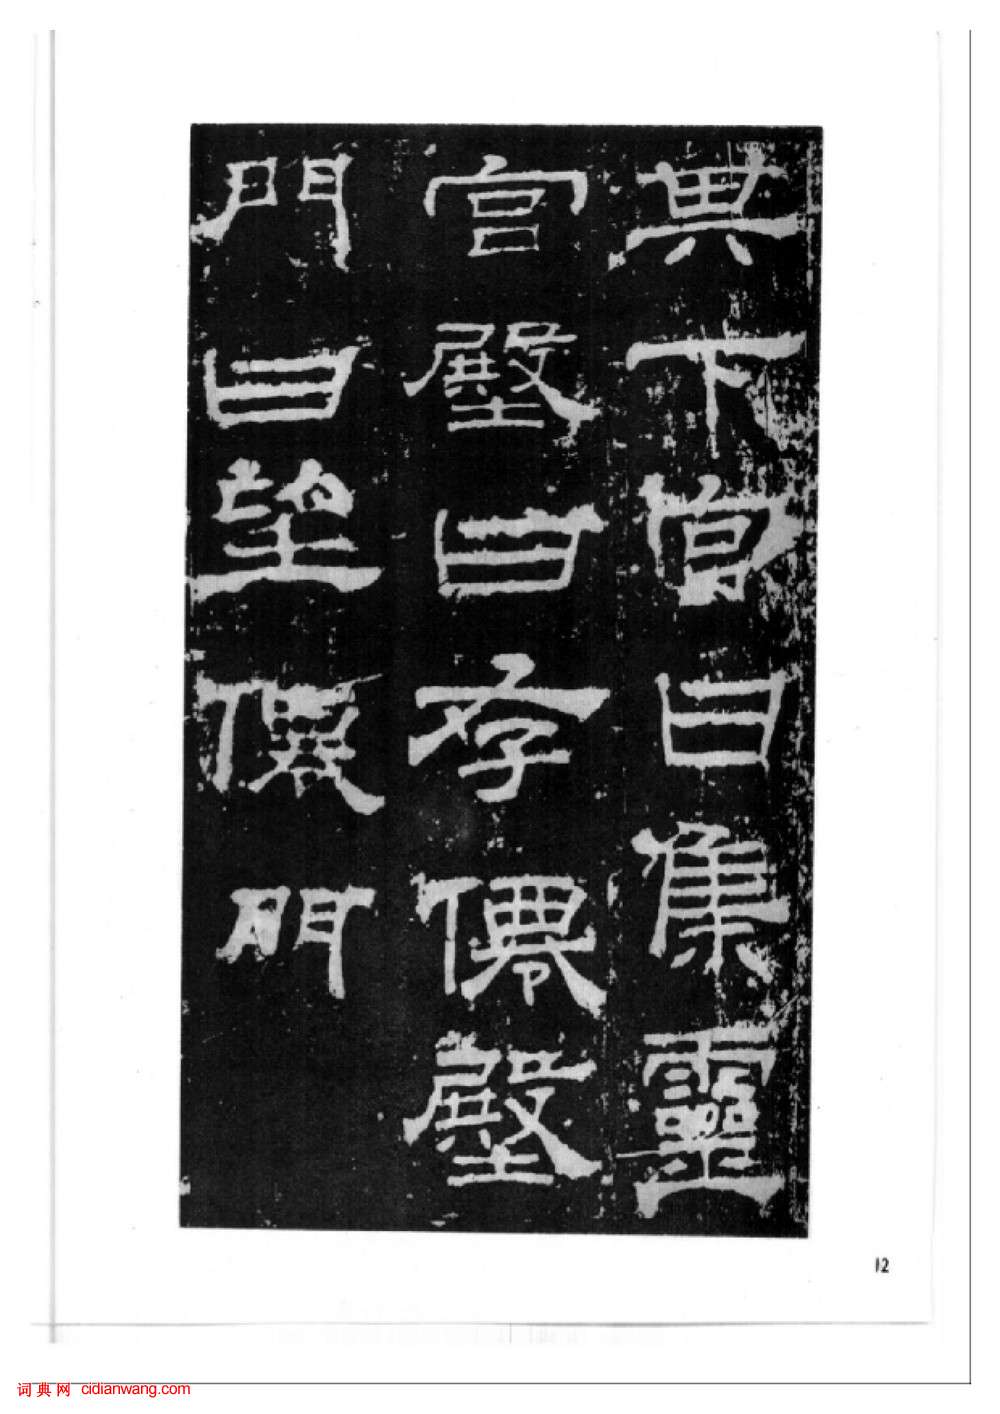 其下宮曰集靈
宮殿曰存僊殿
門曰望僊門
12
词典网 cidianwang.com